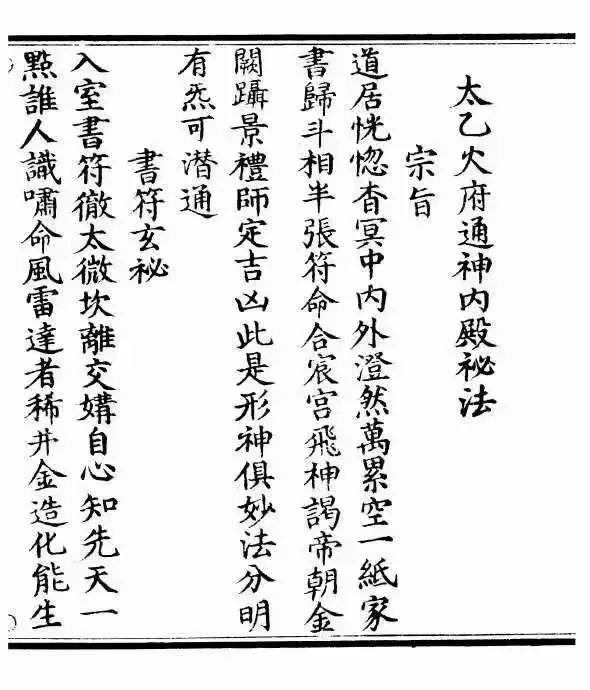 太乙火府通神内殿祕法
宗旨
道居恍惚杳冥中内外澄然萬累空一紙家
書歸斗相半張符命合宸宫飛神謁帝朝金
闕躡景禮師定吉凶此是形神俱妙法分明
有炁可潜通
書符玄祕
入室書符徹太微坎離交媾自心知先天一
點誰人識嘯命風雷達者稀井金造化能生